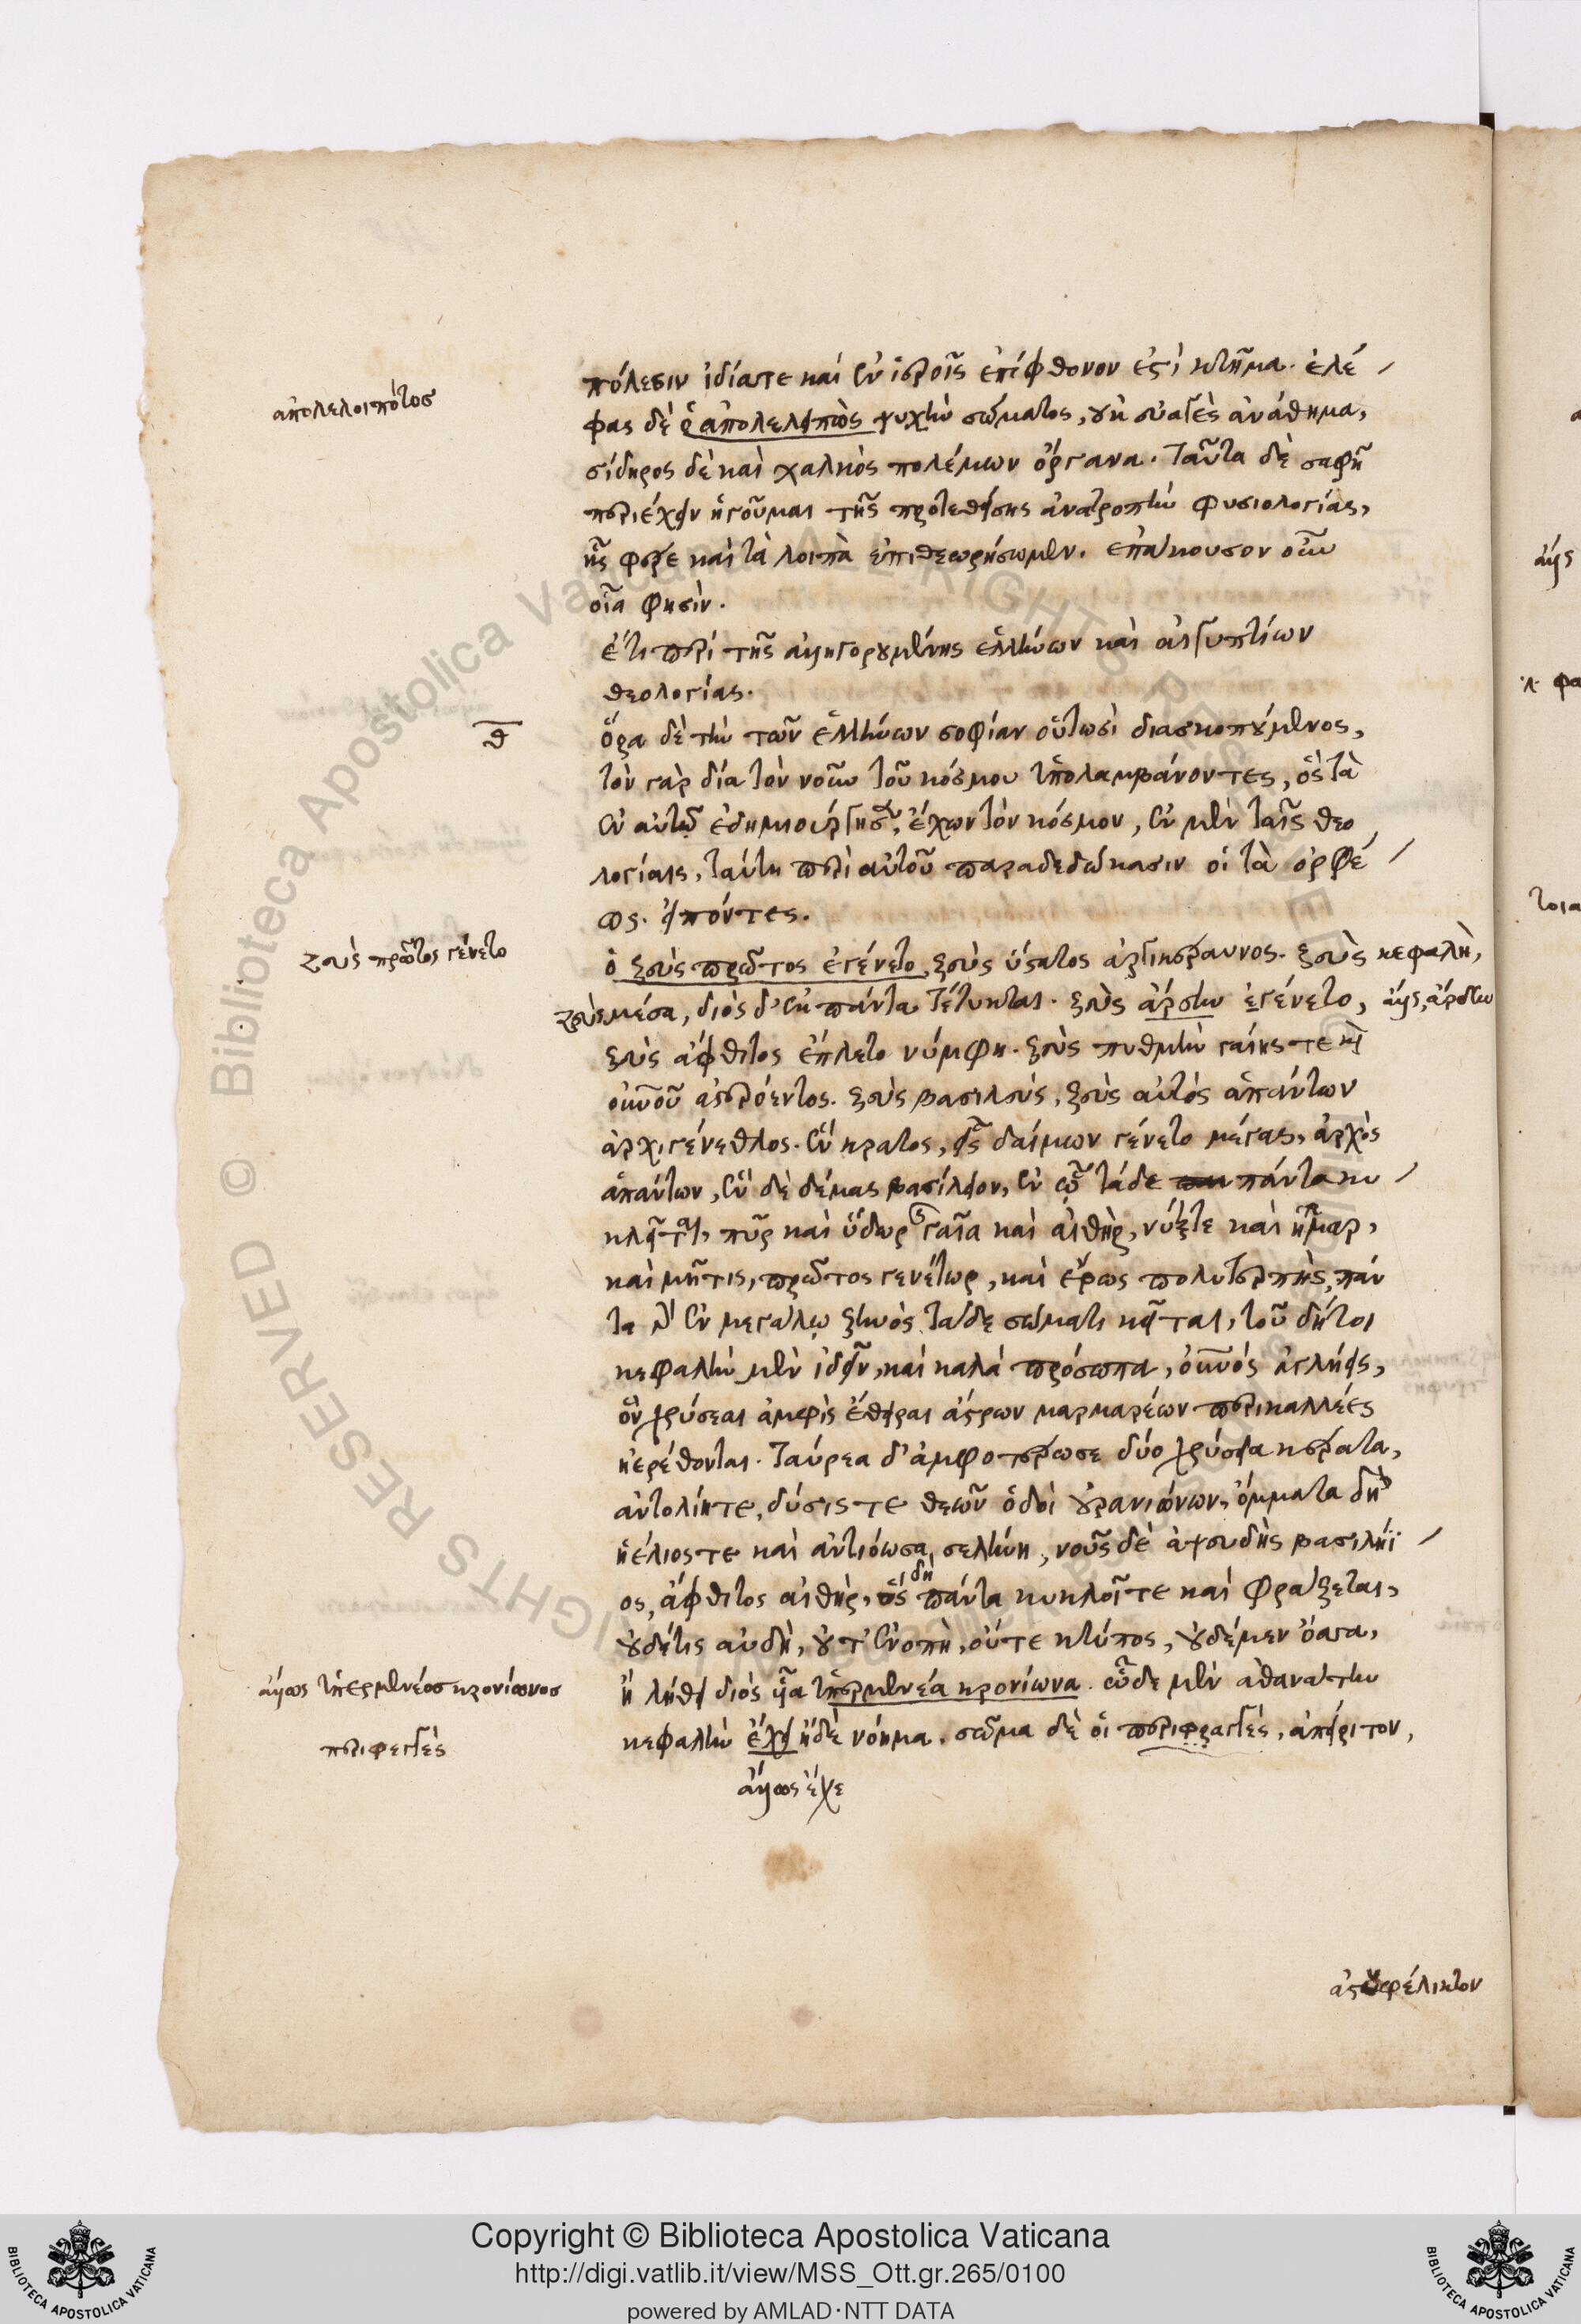 πόλεσιν ἰδίᾳ τε καὶ ἐν ἱεροῖς ἐπίφθονον ἐστὶ κτῆμα. ἐλέ
ἀπολελοιπότος
φας δὲ ὁ ἀπολελειπὼς ψυχὴν σώματος, οὐκ εὐαγὲς ἀνάθημα,
σίδηρος δὲ καὶ χαλκὸς πολέμων ὄργανα. ταῦτα δὲ σαφῆ
περιέχειν ἡγοῦμαι τῆς προτεθείσης ἀνατροπὴν φυσιολογίας,
ἧς φέρε καὶ τὰ λοιπὰ ἐπιθεωρήσωμεν. ἐπάκουσον οὖν
οἷα φησίν.
ἔτι περὶ τῆς ἀλληγορουμένης ἑλλήνων καὶ αἰγυπτίων
θεολογίας.
θ
ὅρα δὲ τὴν τῶν ἑλλήνων σοφίαν οὑτωσὶ διασκοπούμενος,
τὸν γὰρ δία τὸν νοῦν τοῦ κόσμου ὑπολαμβάνοντες, ὃς τὰ
ἐν αὐτῷ ἐδημιούργησεν, ἔχων τὸν κόσμον, ἐν μὲν ταῖς θεο
λογίαις, ταύτῃ περὶ αὐτοῦ παραδεδώκασιν οἱ τὰ ὀρφέ
ως. εἰπόντες.
ζεὺς πρῶτος γένετο
ὁ ζεὺς πρῶτος ἐγένετο, ζεὺς ὕστατος ἀργικέραυνος. ζεὺς κεφαλὴ,
ζεὺς μέσα, διὸς δ' ἐκ πάντα τέτυκται. ζεὺς ἄρσην ἐγένετο, ἄλλως, ἄρσην
ζεὺς ἄφθιτος ἔπλετο νύμφη. ζεὺς πυθμὴν γαίης τε καὶ
οὐνοῦ ἀστερόεντος. ζεὺς βασιλεύς, ζεὺς αὐτὸς ἁπάντων
ἀρχιγένεθλος. ἓν κρατος, εἷς δαίμων γένετο μέγας, ἀρχὸς
ἁπάντων, ἓν δὲ δέμας βασίλειον, ἐν ᾧ τάδε πάντα κυ
κλεῖται, πῦρ καὶ ὕδωρ καὶ γαῖα καὶ αἰθὴρ, νύξ τε καὶ ἦμαρ,
καὶ μῆτις, πρῶτος γενέτωρ, καὶ ἔρως πολυτερπὴς, πάν
τα γὰρ ἐν μεγάλῳ ζηνὸς τάδε σώματι κεῖται, τοῦ δή τοι
κεφαλὴν μὲν ἰδεῖν, καὶ καλὰ πρόσωπα, οὐνὸς αἰγλήεις,
ὃν χρύσεαι ἀμφὶς ἔθειραι ἄστρων μαρμαρέων περικαλλέες
ἠερέθονται. ταύρεα δ' ἀμφοτέρωσε δύο χρύσεια κέρατα,
ἀντολίη τε, δύσις τε θεῶν ὁδοὶ οὐρανιώνων, ὄμματα δὴ
ἠέλιος τε καὶ ἀντιόωσα, σελήνη, νοῦς δὲ ἀψευδὴς βασιλήϊ
ος, ἄφθιτος αἰθὴρ, ὃς δὴ πάντα κυκλοῖ τε καὶ φράζεται,
οὐδέ τις αὐδὴ, οὔτ' ἐνοπὴ, οὔτε κτύπος, οὐδέ μεν ὄσσα,
ἄλλως ὑπερμενέος κρονίωνος
ἣ λήθει διὸς οὖα ὑπερμενέα κρονίωνα. ὧδε μὲν ἀθανάτην
περιφεγγὲς
κεφαλὴν ἔχει ἠδὲ νόημα. σῶμα δὲ οἱ περιφραγγὲς, ἀπείριτον,
ἄλλως ἔχε
ἀστυφέλικτον
Copyright © Biblioteca Apostolica Vaticana
http://digi.vatlib.it/view/MSS_Ott.gr.265/0100
powered by AMLAD·NTT DATA